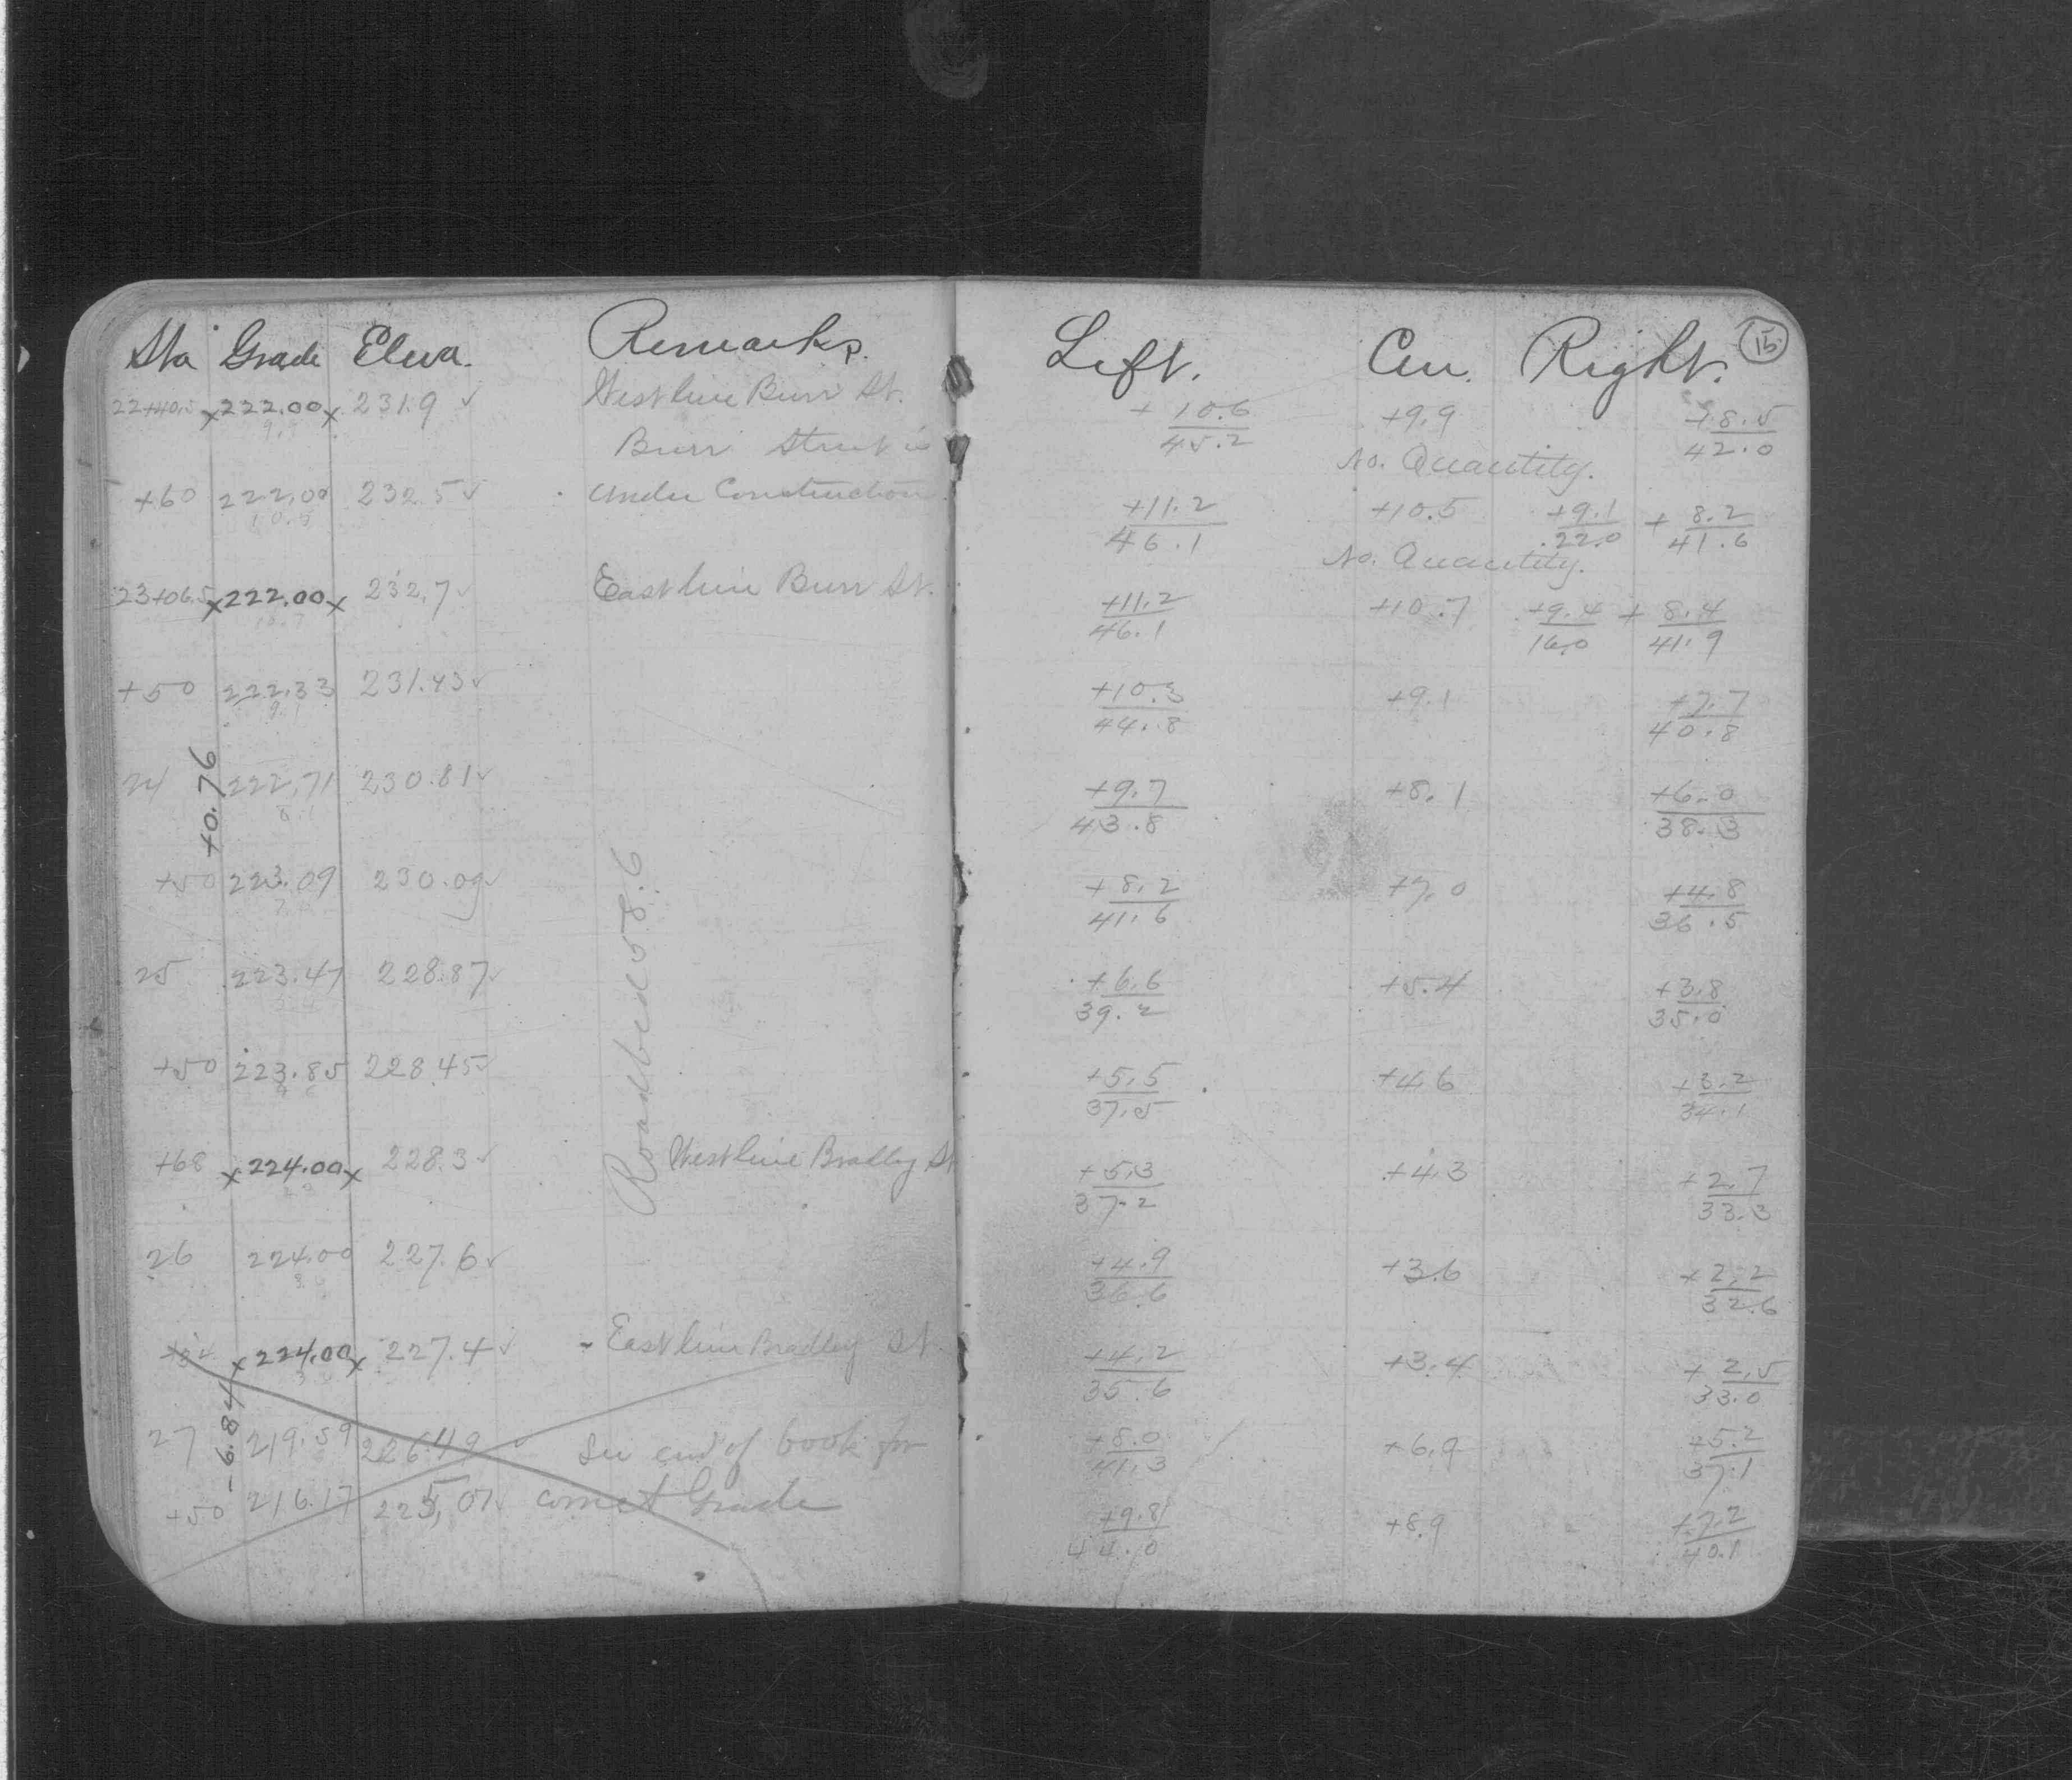 Sta Grade Eleva. Remarks. Left. Cen. Right. 15
22+40.5 x222.00x 231.9 ✓ West line Burr St. +10.6/45.2 +9.9 +8.5/42.0
9.9
Burr Street is
No. Quantity.
+60 222.00 232.5 ✓ under Construction. +11.2/46.1 +10.5 +9.1/22.0 +8.2/41.6
10.5
No. Quantity.
23+06.5 x222.00x 232.7 ✓ East line Burr St. +11.2/46.1 +10.7 +9.4/16.0 +8.4/41.9
10.7
+50 222.33 231.43 ✓ +10.3/44.8 +9.1 +7.7/40.8
9.1
+0.76
24 222.71 230.81 ✓ +9.7/43.8 +8.1 +6.0/38.3
8.1
+50 223.09 230.09 ✓ +8.2/41.6 +7.0 +4.8/36.5
7.0
Roadbed 58.6
25 223.47 228.87 ✓ +6.6/39.2 +5.4 +3.8/35.0
5.4
+50 223.85 228.45 ✓ +5.5/37.5 +4.6 +3.2/34.1
4.6
+68 x224.00x 228.3 ✓ West line Bradley St +5.3/37.2 +4.3 +2.7/33.3
26 224.00 227.6 ✓ +4.9/36.6 +3.6 +2.2/32.6
x224.00x 227.4 ✓ - East line Bradley St. +4.2/35.6 +3.4 +2.5/33.0
-6.84
27 219.59 226.49 ✓ See end of book for +8.0/41.3 +6.9 +5.2/37.1
+50 216.17 225.07 ✓ correct Grade +9.8/44.0 +8.9 +7.2/40.1